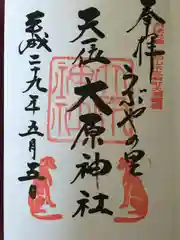 奉拝
うぶやの里
天一位
大原神社
平成二十九年五月五日